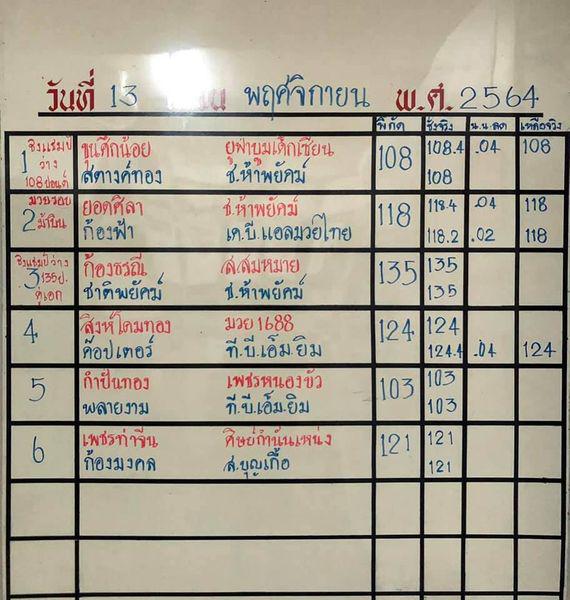 วันที่ 13 พฤศจิกายน พ.ศ. 2564
พิกัด ชั่งจริง น.น.ลด เหลือจริง
1 ชิงแชมป์ ว่าง 108 ปอนด์
ขุนศึกน้อย ยูฟ่าบูมเด็กเซียน 108 108.4 .04 108
สตางค์ทอง ช.ห้าพยัคฆ์ 108
2 มวยรอบ ม้ามืด
ยอดศิลา ช.ห้าพยัคฆ์ 118 118.4 .04 118
ก้องฟ้า เค.บี.แอลมวยไทย 118.2 .02 118
3 ชิงแชมป์ว่าง 135ป. คู่เอก
ก้องธรณี ส.สมหมาย 135 135
ชาติพยัคฆ์ ช.ห้าพยัคฆ์ 135
4 สิงห์โดมทอง มวย1688 124 124
ค๊อปเตอร์ ที.บี.เอ็ม.ยิม 124.4 .04 124
5 กำปั่นทอง เพชรหนองบัว 103 103
พลายงาม ที.บี.เอ็ม.ยิม 103
6 เพชรท่าจีน ศิษย์กำนันเหน่ง 121 121
ก้องมงคล ส.บุญเกื้อ 121